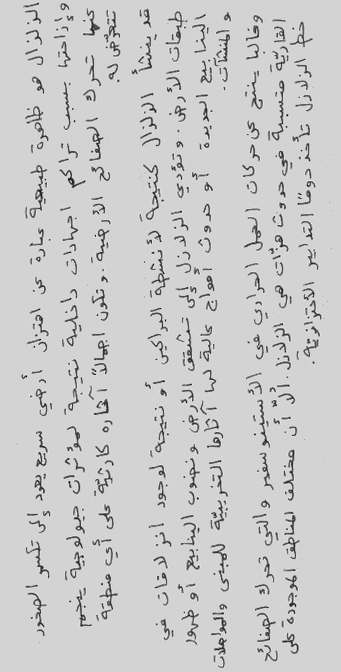 الزلزال هو ظاهرة طبيعية عبارة عن اهتزاز أرضي سريع يعود إلى تكسر الصخور
وإزاحتها بسبب تراكم اجهادات داخلية نتيجة لمؤثرات جيولوجية ينجم
عنها تحرك الصفائح الأرضية. وتكون اجمالاً آثاره كارثية على أي منطقة
تتعرض له.
قد ينشأ الزلزال كنتيجة لأنشطة البراكين أو نتيجة لوجود انزلاقات في
طبقات الأرض. وتؤدي الزلازل إلى تشقق الأرض ونضوب الينابيع أو ظهور
الينابيع الجديدة أو حدوث امواج عالية لها آثارها التخريبية للمبنى والمواصلات
والمنشآت.
وغالبا ينتج عن حركات الحمل الحراري في الأستينوسفير والتي تحرك الصفائح
القارية متسببة في حدوث هزات هي الزلازل. ألا أن مختلف المناطق الموجودة على
خط الزلازل تأخذ دوماً التدابير الأحترازية.